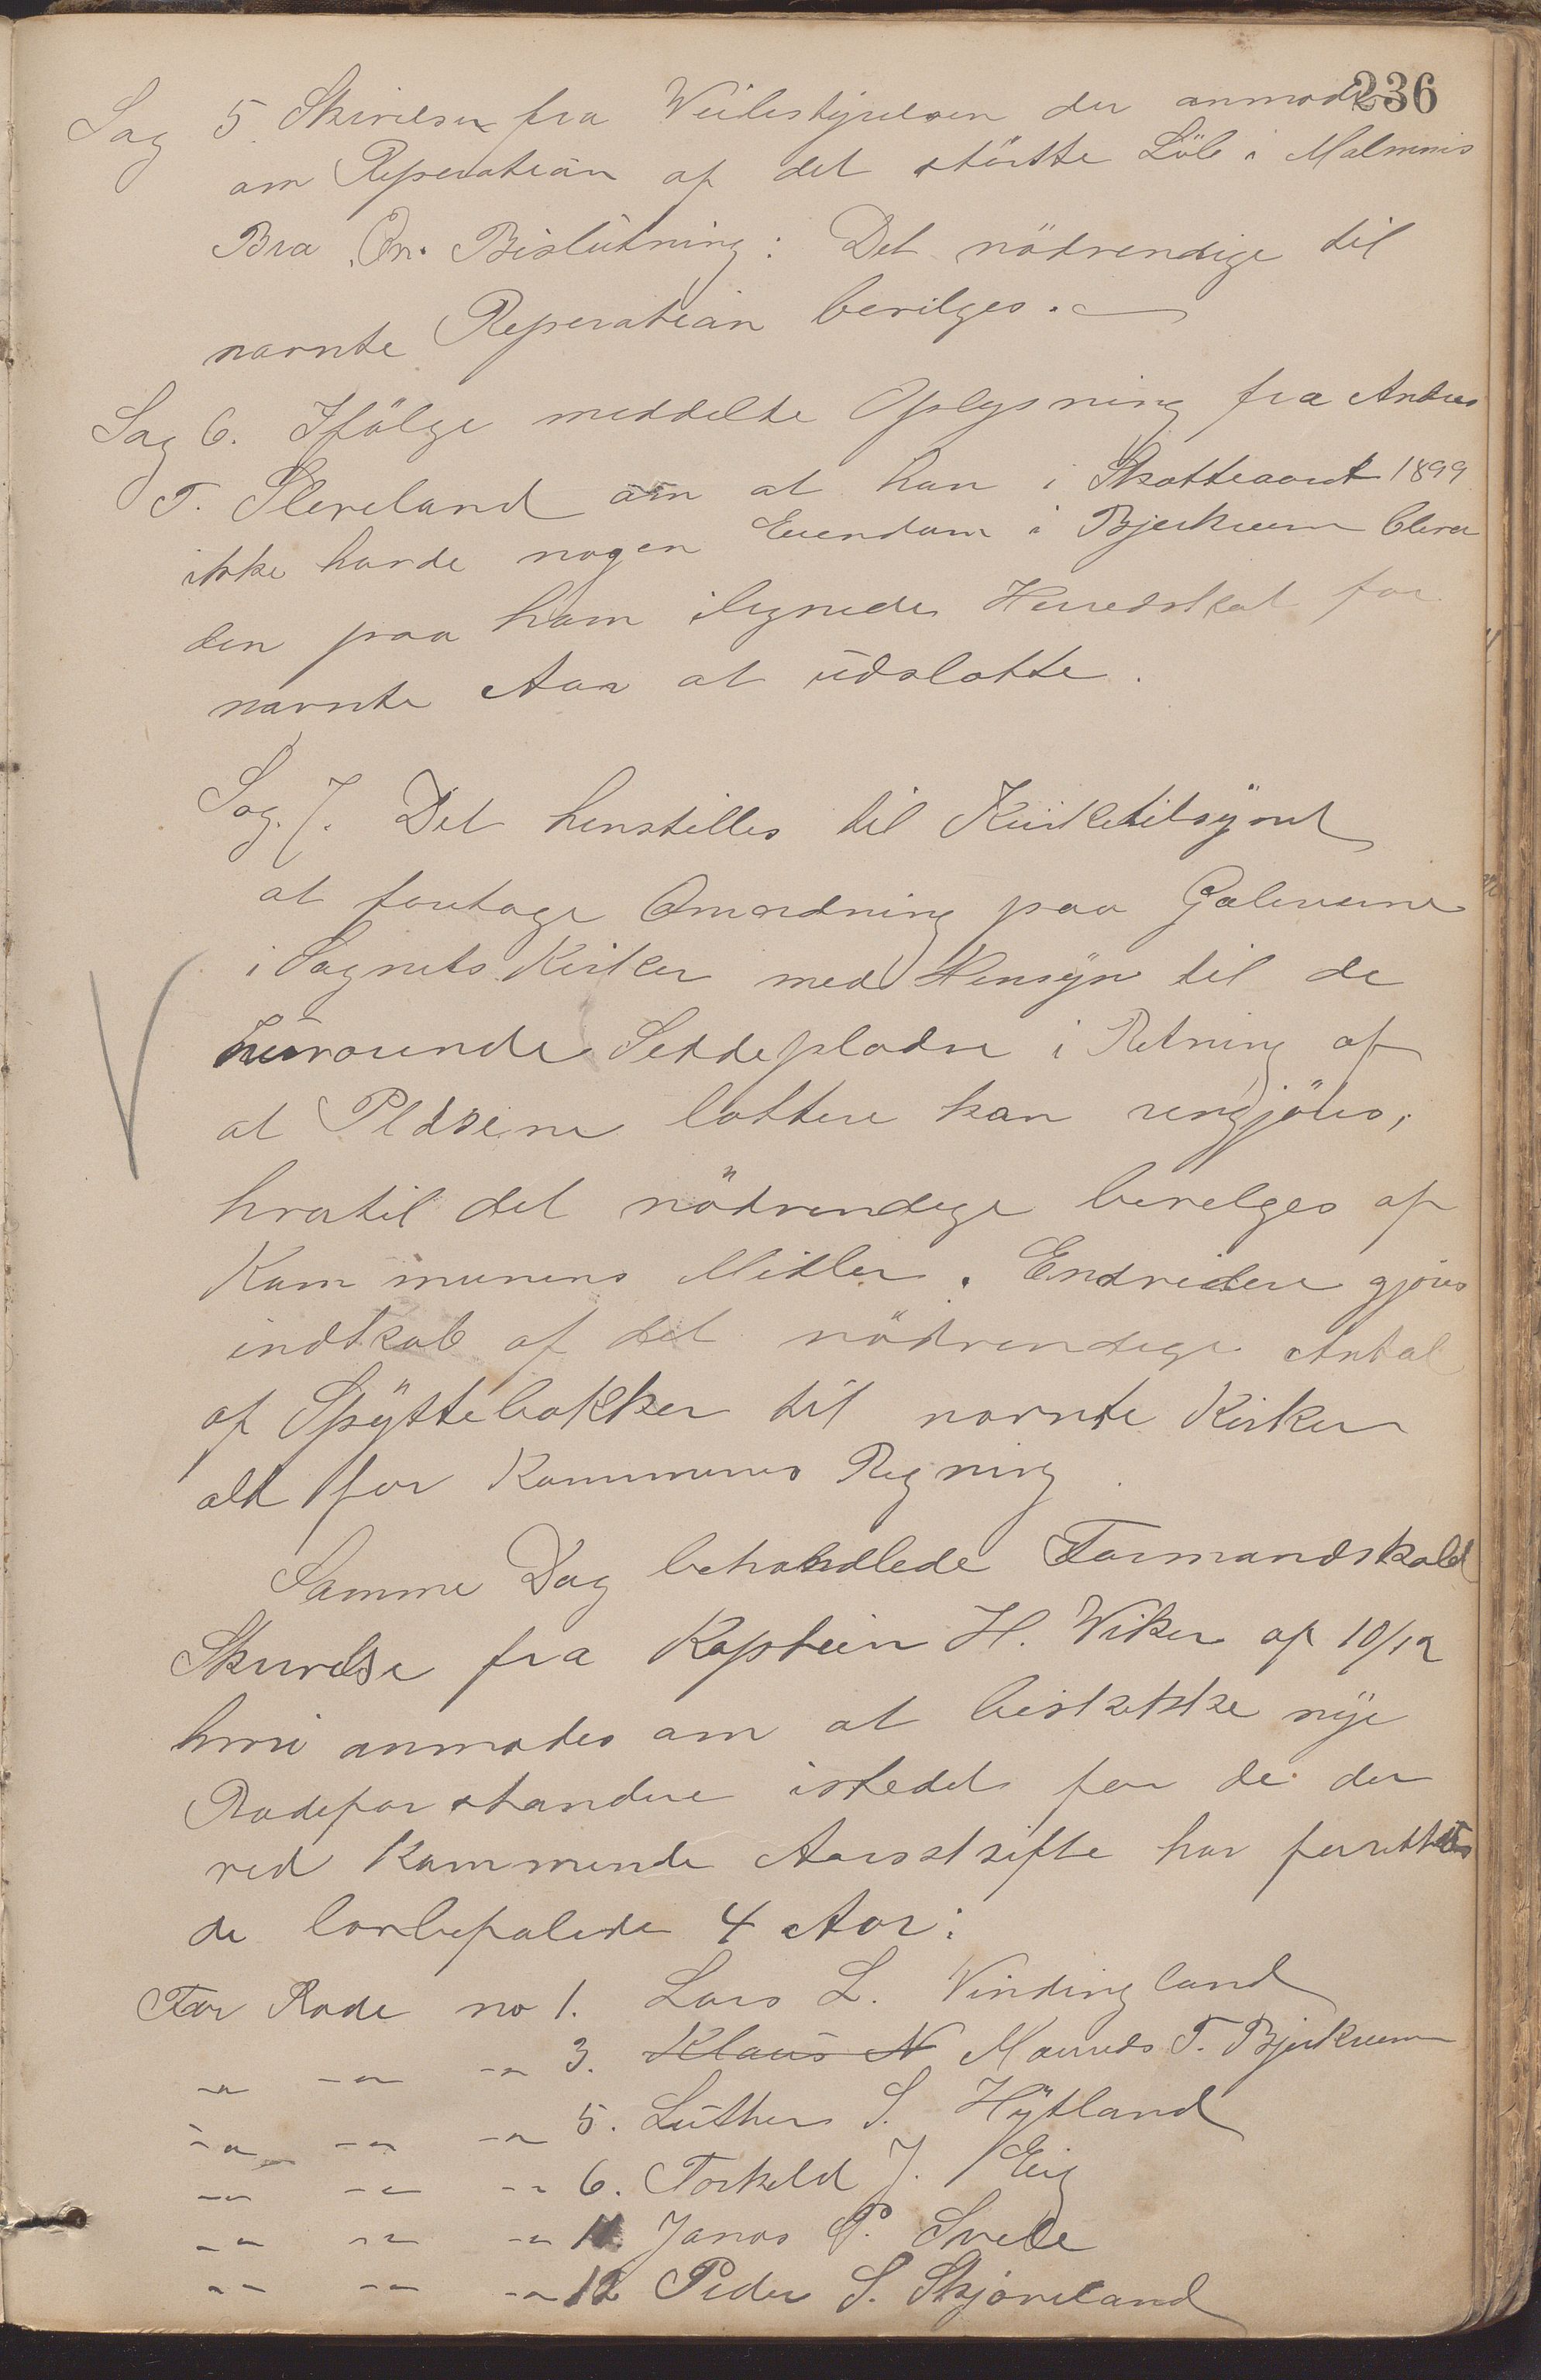 236
Sag 5. Skrivelse fra Veibestyrelsen der anmoder
om Reperation af det störtte Löb i Malmeis
Bro. En. Beslutning: Det nödvendige til
nævnte Reperation bevilges.
Sag 6. Ifölge meddelte Oplysning fra Andres
T. Sleveland om at han i Skatteaaret 1899
ikke havde nogen Eiendom i Bjerkreim blev
den paa ham ilignede Herredskat for
nævnte Aar at udslette.
Sag. 7. Det henstilles til Kirketilsynet
at foretage Omordning paa Galerierne
i Sognets Kirker med Hensyn til de
nuværende Siddepladse i Retning af
at Pladsene lettere kan rengjöres,
hvortil det nödvendige bevilges af
Kommunens Midler. Endvidere gjöres
indkjöb af det nödvendige Antal
af Spyttebakker til nævnte Kirker
alt for Kommunens Regning
Samme Dag behandlede Formandskabet
Skrivelse fra Kaptein H. Wiker af 10/12
hvori anmodes om at beskikke nye
Rodeforstandere istedet for de der
ved kommende Aarsskifte har forrettet
de lovbefalede 4 Aar:
For Rode no 1. Lars L. Vindingland
-"- -"- -"- 3. Klaus N Mauritz T. Bjerkreim
-"- -"- -"- 5. Luther S. Hytland
-"- -"- -"- 6. Torkeld J. Eeg
-"- -"- -"- 11. Jonas P. Svele
-"- -"- -"- 12 Peder S. Skjæveland